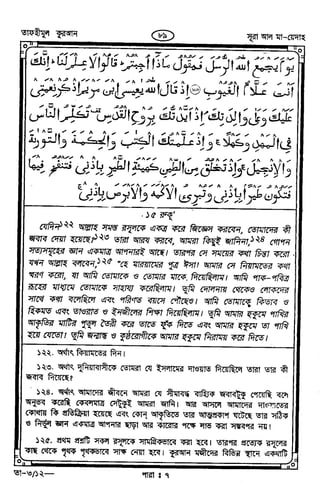 তাফহীমুল কুরআন
৮৯
সূরা আল মা-য়েদাহ
يوم يجمع الله الرسل فيقول ماذا اجبتم قالوا لا علم لنا انك
انت علام الغيوب اذ قال الله يعيسى ابن مريم اذكر نعمتى
عليك وعلى والدتك اذ ايدتك بروح القدس تكلم الناس
فى المهد وكهلا واذ علمتك الكتب والحكمة والتورية
والانجيل واذ تخلق من الطين كهيئة الطير باذنى فتنفخ فيها
فتكون طيرا باذنى وتبرئ الاكمه والابرص باذنى
১৫ রুকূ'
যেদিন১২২ আল্লাহ সমস্ত রসূলকে একত্র করে জিজ্ঞেস করবেন, তোমাদের কী
জবাব দেয়া হয়েছে?১২৩ তারা আরয করবে, আমরা কিছুই জানিনা,১২৪ গোপন
সত্যসমূহের জ্ঞান একমাত্র আপনারই আছে। তারপর সে সময়ের কথা চিন্তা করো
যখন আল্লাহ বলবেন,১২৫ "হে মারয়ামের পুত্র ঈসা! আমার সে নিয়ামতের কথা
স্মরণ করো, যা আমি তোমাকে ও তোমার মাকে দিয়েছিলাম। আমি পাক-পবিত্র
রূহের মাধ্যমে তোমাকে সাহায্য করেছিলাম। তুমি দোলনায় থেকেও লোকদের
সাথে কথা বলেছিলে এবং পরিণত বয়সে পৌঁছেও। আমি তোমাকে কিতাব ও
হিকমত এবং তাওরাত ও ইনজীলের শিক্ষা দিয়েছিলাম। তুমি আমার হুকুমে পাখির
আকৃতির মাটির পুতুল তৈরী করে তাতে ফুঁক দিতে এবং আমার হুকুমে তা পাখি
হয়ে যেতো। তুমি জন্মান্ধ ও কুষ্ঠরোগীকে আমার হুকুমে নিরাময় করে দিতে।
১২২. অর্থাৎ কিয়ামতের দিন।
১২৩. অর্থাৎ দুনিয়াবাসীকে তোমরা যে ইসলামের দাওয়াত দিয়েছিলে তারা তার কী
জবাব দিয়েছে?
১২৪. অর্থাৎ আমাদের জীবনে আমরা যে সীমাবদ্ধ বাহ্যিক জবাবটুকু পেয়েছি বলে
অনুভব করেছি কেবলমাত্র সেটুকুই আমরা জানি। আর আসলে আমাদের দাওয়াতের
কোথায় কি প্রতিক্রিয়া হয়েছে এবং কোন্ আকৃতিতে তার আত্মপ্রকাশ ঘটেছে তার সঠিক
ও নির্ভুল জ্ঞান একমাত্র আপনার ছাড়া আর কারোর পক্ষে লাভ করা সম্ভবপর নয়।
১২৫. প্রথম প্রশ্নটি সকল রসূলকে সামগ্রিকভাবে করা হবে। তারপর প্রত্যেক রসূলের
কাছ থেকে পৃথক পৃথকভাবে সাক্ষ নেয়া হবে। কুরআন মজীদের বিভিন্ন স্থানে একথাটি
তা-৩/১২—
পারা : ৭